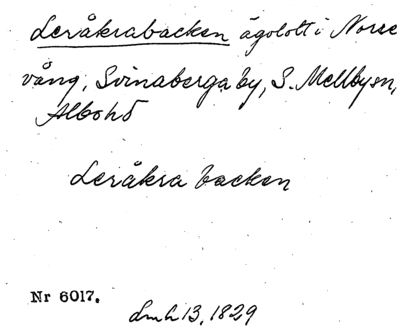 Leråkrabacken ägolott i Norre
vång, Svinaberga by, S. Mellby sn,
Albo hd
Leråkra backen
Nr 6017.
Lmh 13, 1829